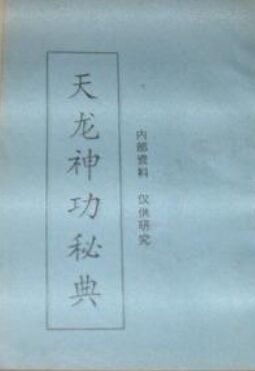 天龙神功秘典
内部资料 仅供研究